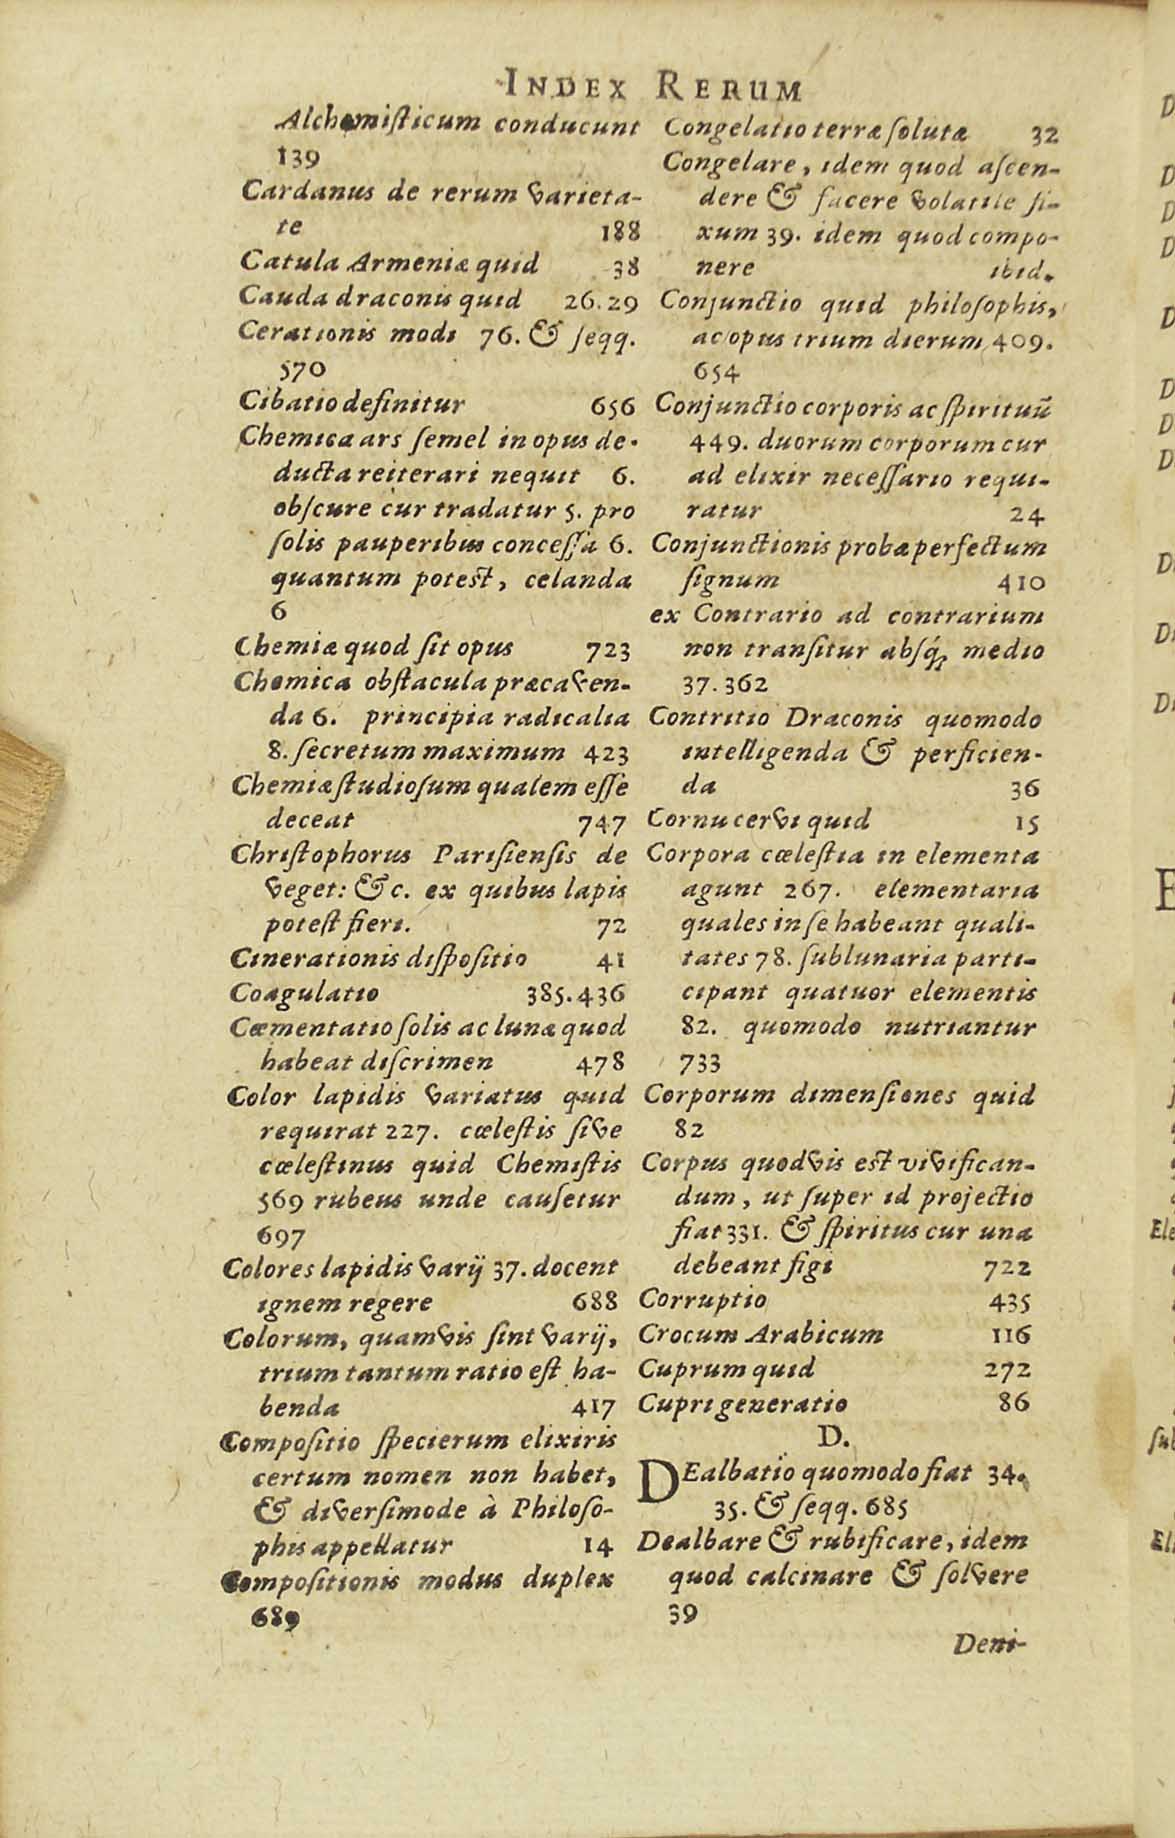 INDEX RERUM
Alchemisticum conducunt
139
Cardanus de rerum varieta-
te 188
Catula Armeniæ quid 38
Cauda draconis quid 26.29
Cerationis modi 76. & seqq.
570
Cibatio definitur 656
Chemica ars semel in opus de-
ducta reiterari nequit 6.
obscure cur tradatur 5. pro
solis pauperibus concessa 6.
quantum potest, celanda
6
Chemiæ quod sit opus 723
Chemica obstacula præcaven-
da 6. principia radicalia
8. secretum maximum 423
Chemiæ studiosum qualem esse
deceat 747
Christophorus Parisiensis de
veget: &c. ex quibus lapis
potest fieri. 72
Cinerationis dispositio 41
Coagulatio 385.436
Cæmentatio solis ac lunæ quod
habeat discrimen 478
Color lapidis variatus quid
requirat 227. cœlestis sive
cœlestinus quid Chemistis
569 rubeus unde causetur
697
Colores lapidis varij 37. docent
ignem regere 688
Colorum, quamvis sint varij,
trium tantum ratio est ha-
benda 417
Compositio specierum elixiris
certum nomen non habet,
& diversimode à Philoso-
phis appellatur 14
Compositionis modus duplex
689
Congelatio terræ solutæ 32
Congelare, idem quod ascen-
dere & facere volatile fi-
xum 39. idem quod compo-
nere ibid.
Conjunctio quid philosophis,
ac opus trium dierum 409.
654
Conjunctio corporis ac spirituũ
449. duorum corporum cur
ad elixir necessario requi-
ratur 24
Conjunctionis probæ perfectum
signum 410
ex Contrario ad contrarium
non transitur absq́; medio
37.362
Contritio Draconis quomodo
intelligenda & perficien-
da 36
Cornu cervi quid 15
Corpora cœlestia in elementa
agunt 267. elementaria
quales in se habeant quali-
tates 78. sublunaria parti-
cipant quatuor elementis
82. quomodo nutriantur
733
Corporum dimensiones quid
82
Corpus quodvis est vivifican-
dum, ut super id projectio
fiat 331. & spiritus cur una
debeant figi 722
Corruptio 435
Crocum Arabicum 116
Cuprum quid 272
Cupri generatio 86
D.
DEalbatio quomodo fiat 34.
35. & seqq. 685
Dealbare & rubificare, idem
quod calcinare & solvere
39
Deni-